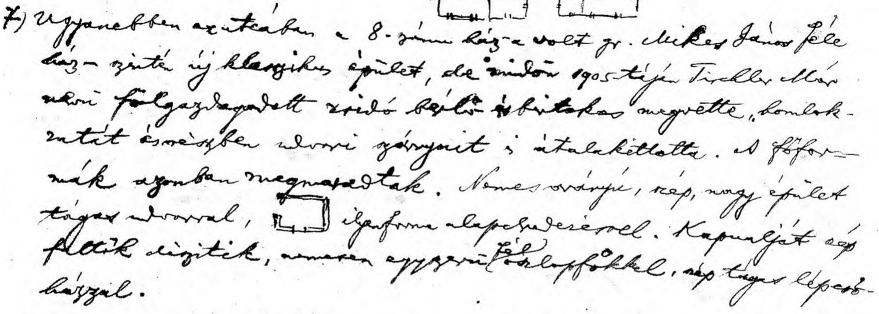 7) Ugyanebben az utcában a 8. számú ház – a volt gr. Mikes János féle
ház – szintén új klasszikus épület, de midőn 1905 táján Tischler Mór
nevű fölgazdagodott zsidó bérlő és birtokos megvette, homlok-
zatát és részben udvari szárnyait is átalakíttatta. A főfor-
mák azonban megmaradtak. Nemes arányú, szép, nagy épület
tágas udvarral, ilyenforma alapelrendezéssel. Kapualját szép
fülkék díszitik, nemesen egyszerű fél oszlopfőkkel, szép tágas lépcső-
házzal.